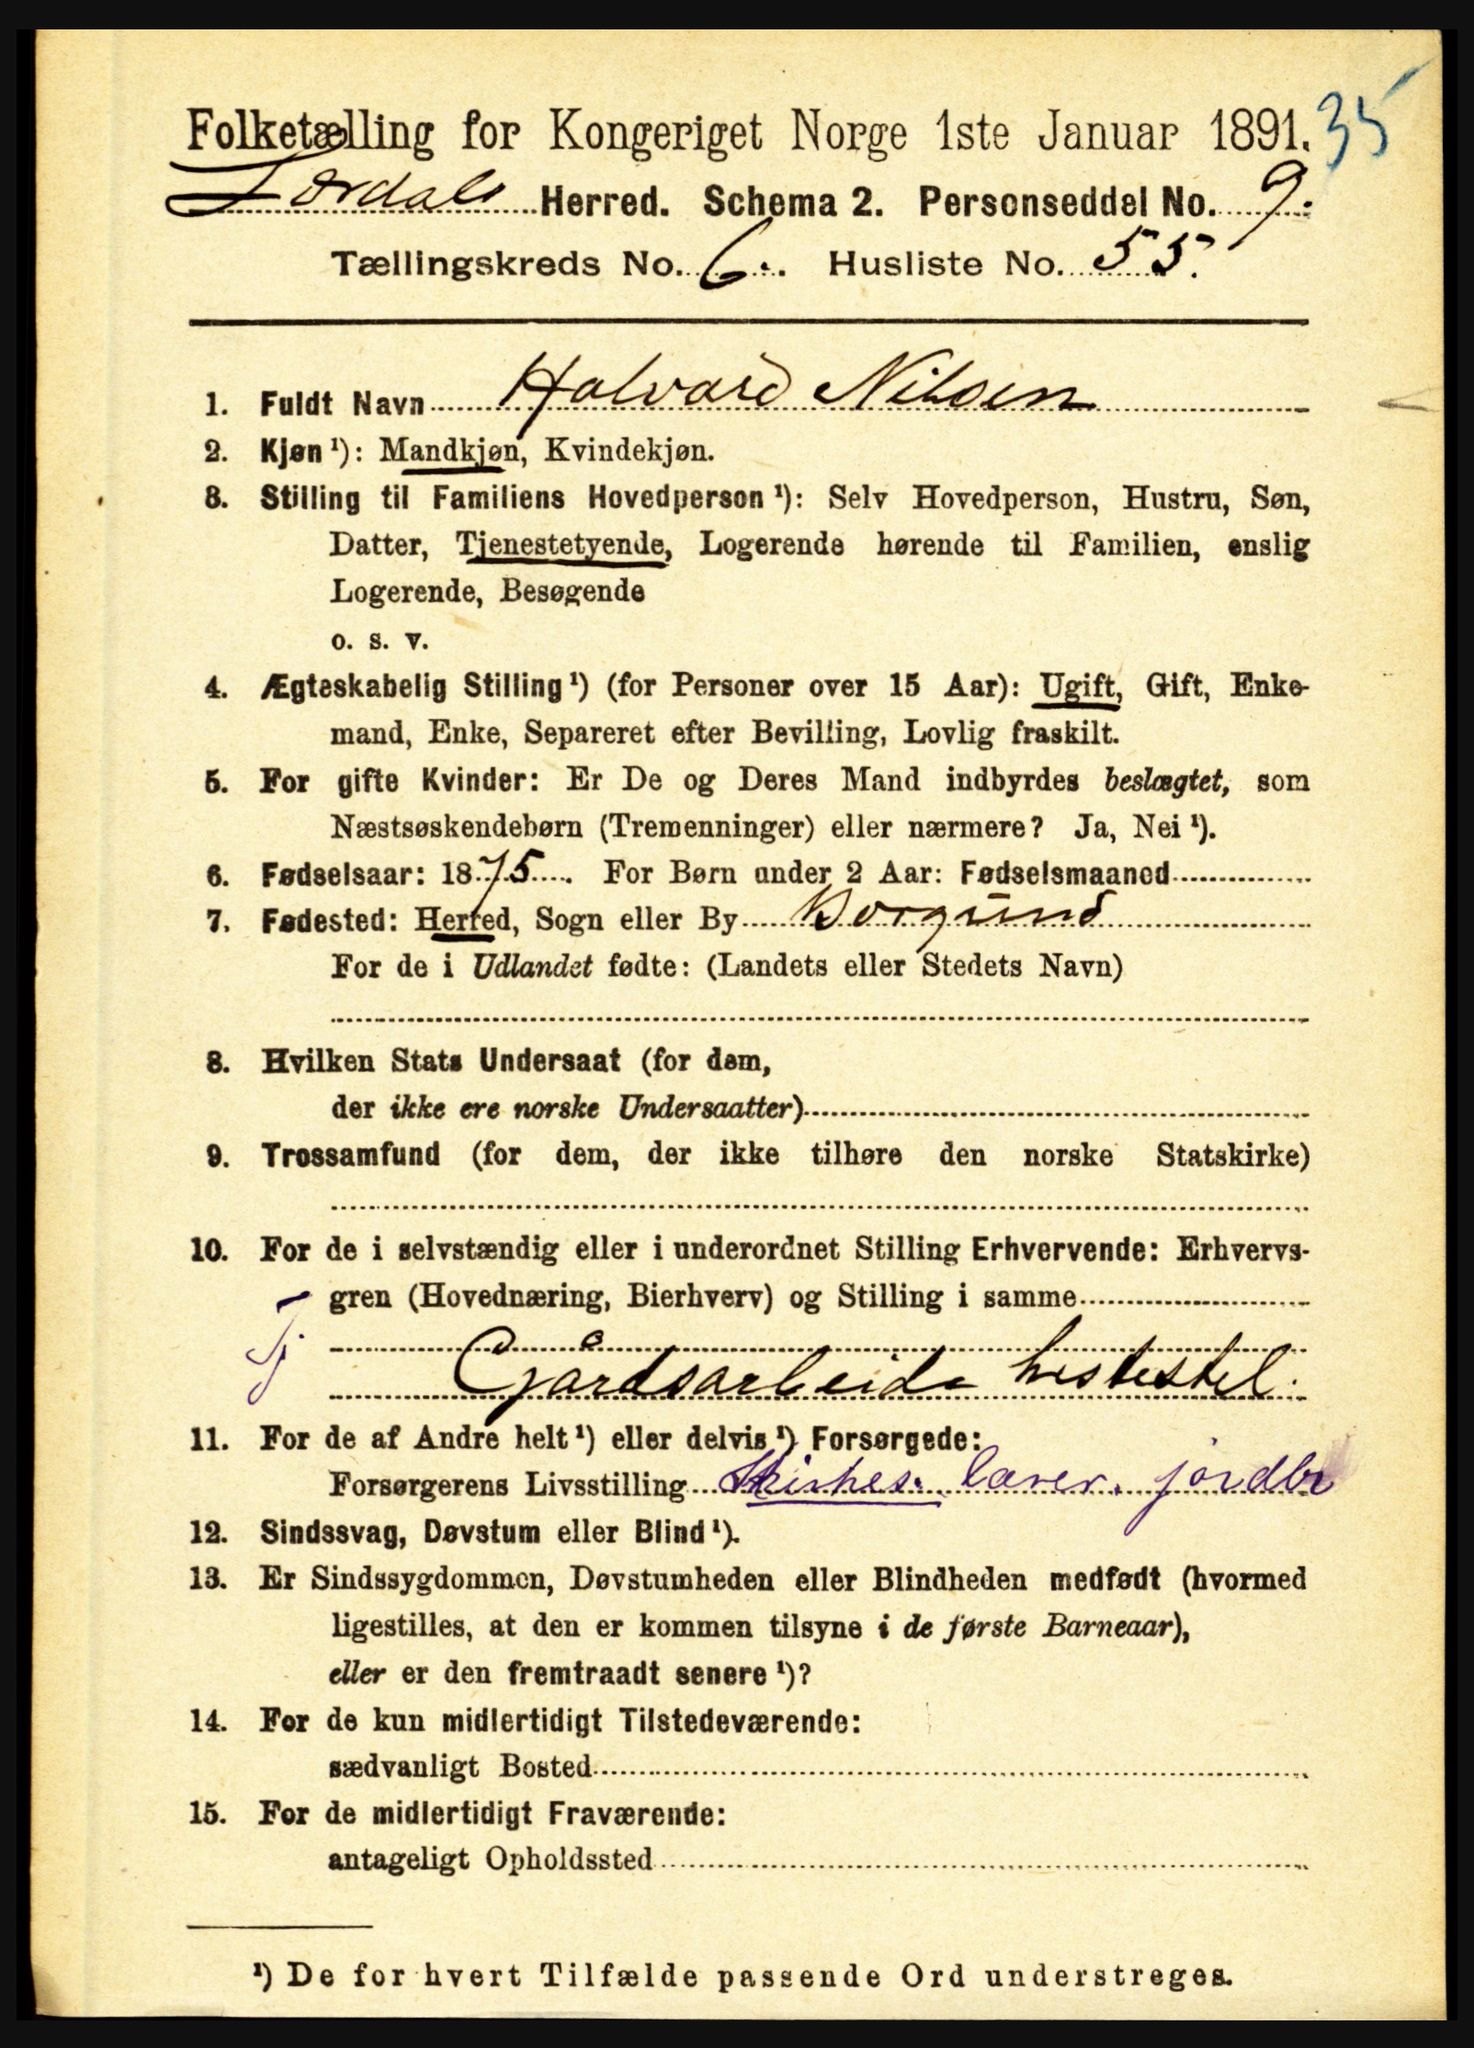 Folketælling for Kongeriget Norge 1ste Januar 1891. 35
Lærdals Herred. Schema 2. Personseddel No. 9.
Tællingskreds No. 6. Husliste No. 55.
1. Fuldt Navn Halvard Nilsen
2. Kjøn ¹): Mandkjøn, Kvindekjøn.
3. Stilling til Familiens Hovedperson ¹): Selv Hovedperson, Hustru, Søn,
Datter, Tjenestetyende, Logerende hørende til Familien, enslig
Logerende, Besøgende
o. s. v.
4. Ægteskabelig Stilling ¹) (for Personer over 15 Aar): Ugift, Gift, Enke-
mand, Enke, Separeret efter Bevilling, Lovlig fraskilt.
5. For gifte Kvinder: Er De og Deres Mand indbyrdes beslægtet, som
Næstsøskendebørn (Tremenninger) eller nærmere? Ja, Nei ¹).
6. Fødselsaar: 1875. For Børn under 2 Aar: Fødselsmaaned
7. Fødested: Herred, Sogn eller By Borgund
For de i Udlandet fødte: (Landets eller Stedets Navn)
8. Hvilken Stats Undersaat (for dem,
der ikke ere norske Undersaatter)
9. Trossamfund (for dem, der ikke tilhøre den norske Statskirke)
10. For de i selvstændig eller i underordnet Stilling Erhvervende: Erhvervs-
gren (Hovednæring, Bierhverv) og Stilling i samme
Tj Gårdsarbeide hestestel.
11. For de af Andre helt ¹) eller delvis ¹) Forsørgede:
Forsørgerens Livsstilling lærer. jordbr
12. Sindssvag, Døvstum eller Blind ¹).
13. Er Sindssygdommen, Døvstumheden eller Blindheden medfødt (hvormed
ligestilles, at den er kommen tilsyne i de første Barneaar),
eller er den fremtraadt senere ¹)?
14. For de kun midlertidigt Tilstedeværende:
sædvanligt Bosted
15. For de midlertidigt Fraværende:
antageligt Opholdssted
¹) De for hvert Tilfælde passende Ord understreges.